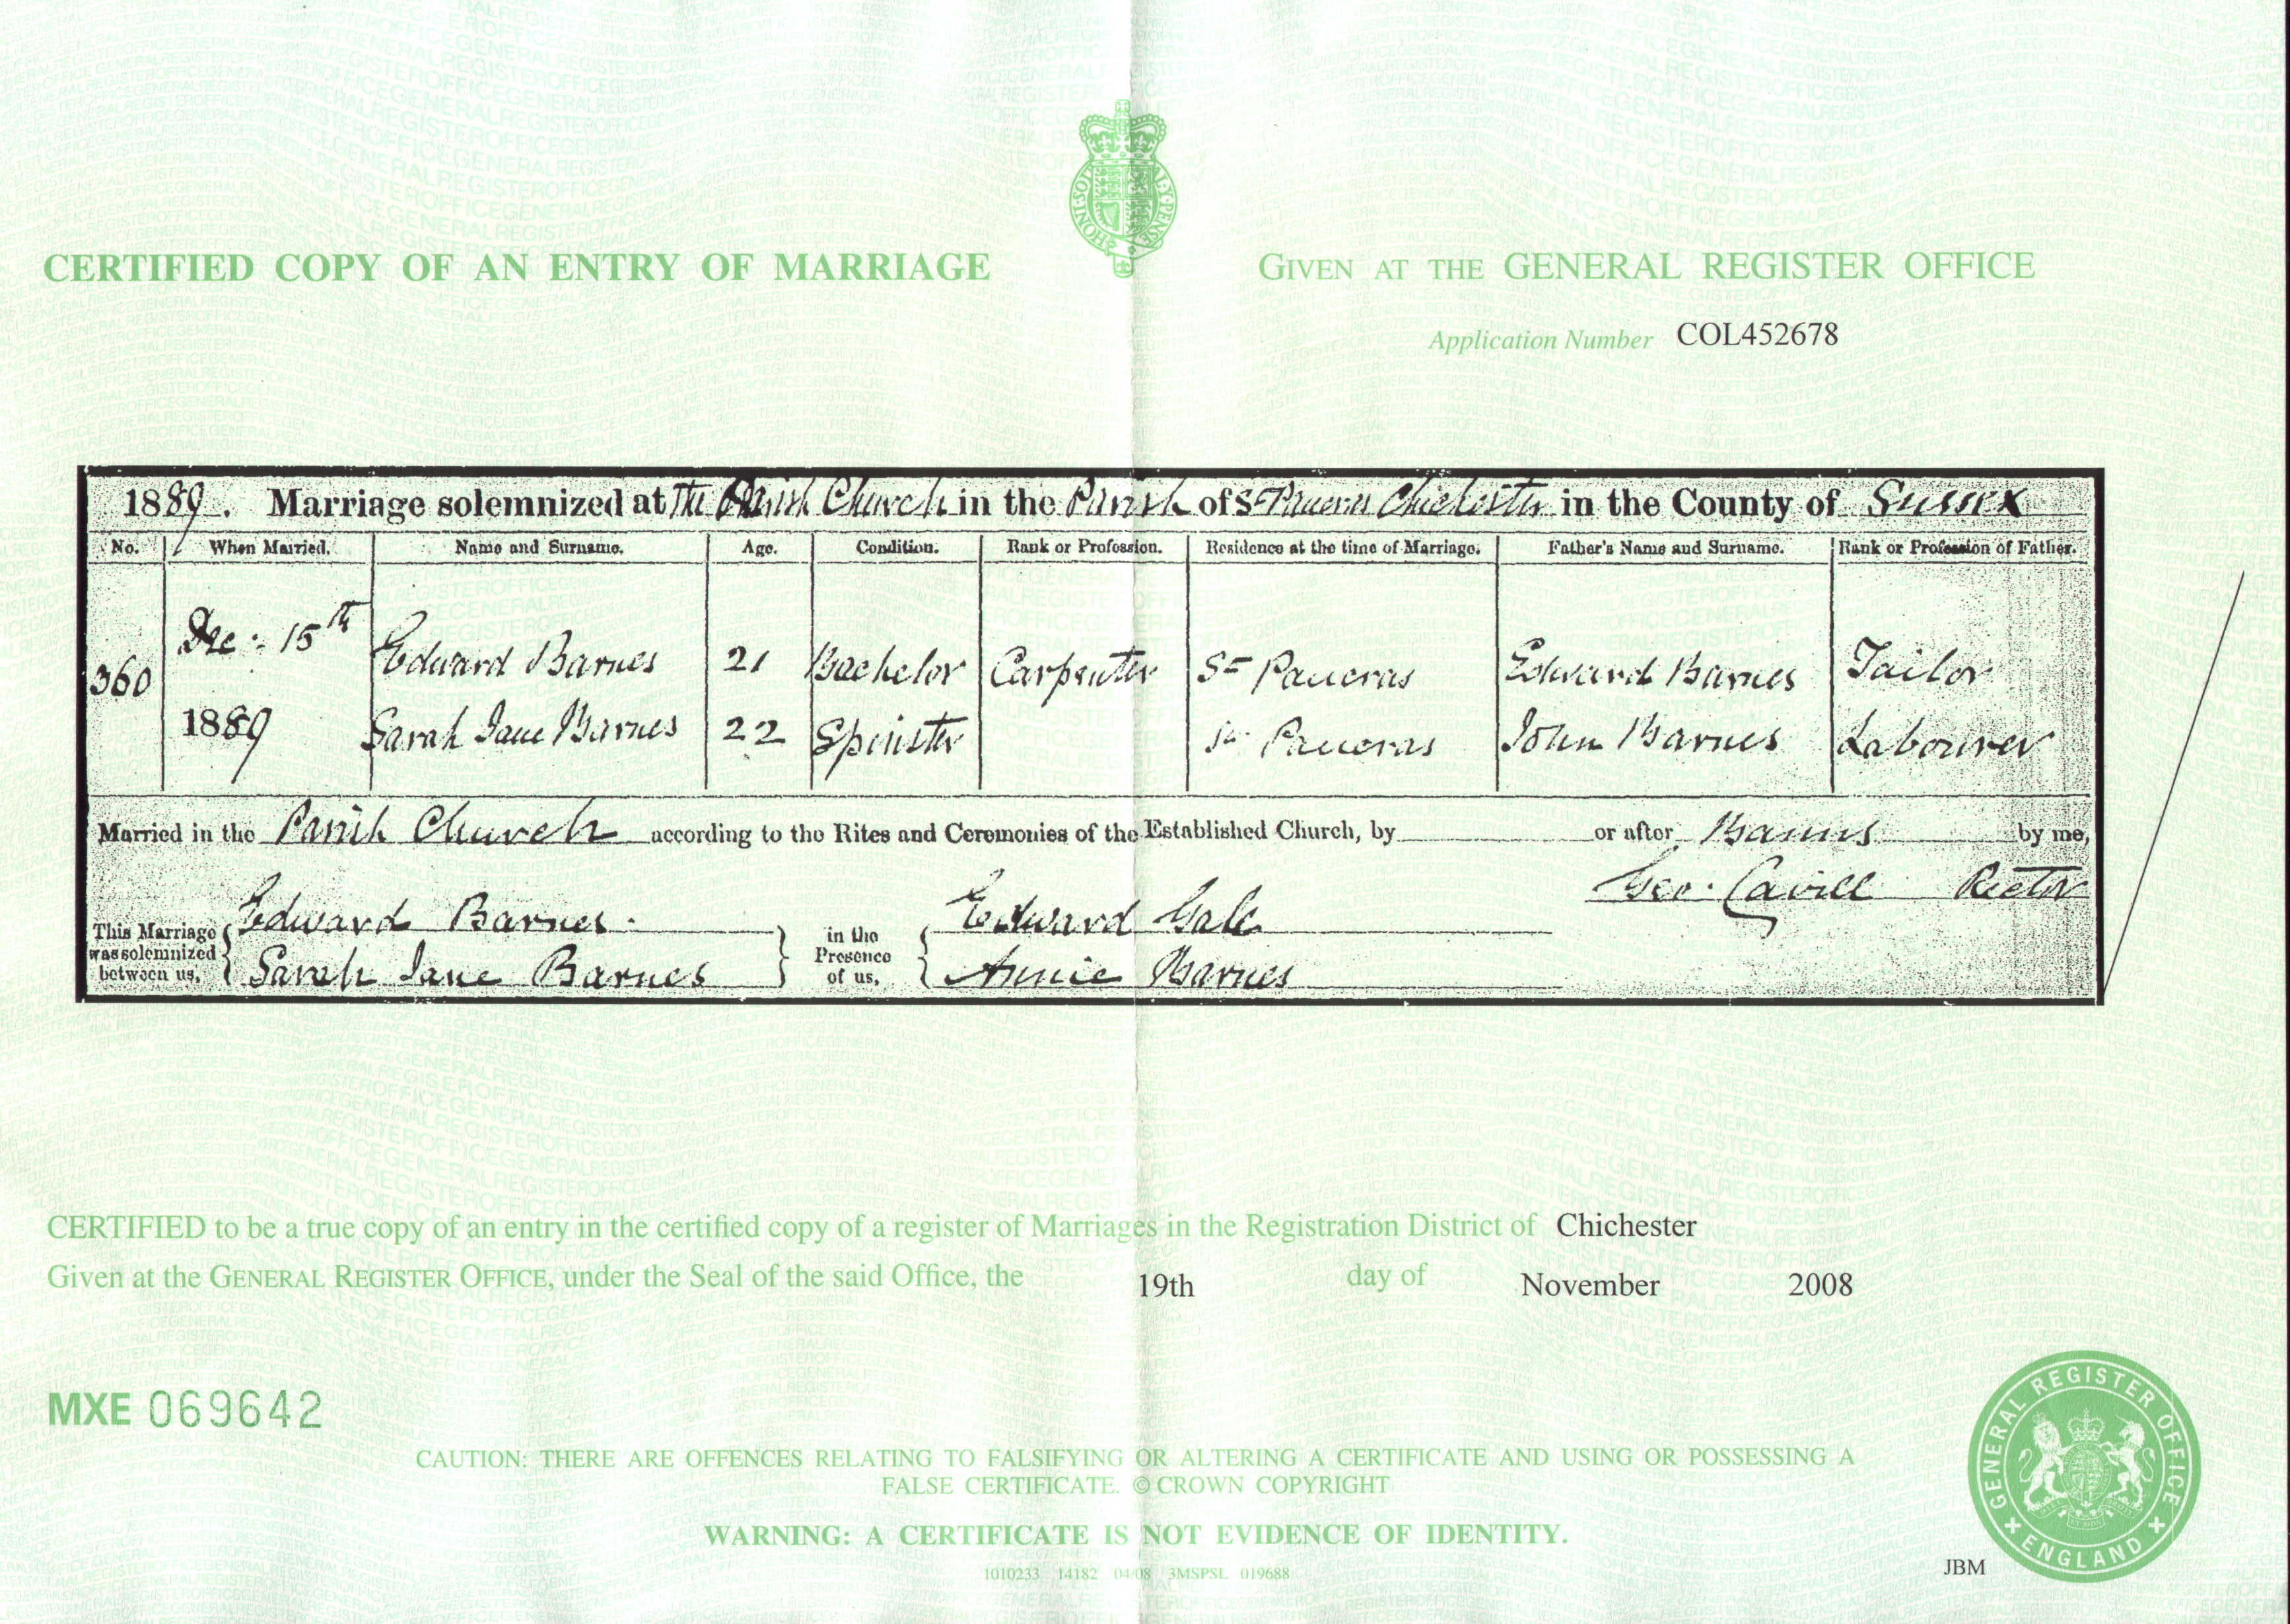 HONI·SOI AL·Y·PENSE
CERTIFIED COPY OF AN ENTRY OF MARRIAGE
GIVEN AT THE GENERAL REGISTER OFFICE
Application Number COL452678
1889. Marriage solemnized at The Parish Church in the Parish of St Pancras Chichester in the County of Sussex
No. When Married. Name and Surname. Age. Condition. Rank or Profession. Residence at the time of Marriage. Father's Name and Surname. Rank or Profession of Father.
360 Dec: 15th Edward Barnes 21 Bachelor Carpenter St Pancras Edward Barnes Tailor
1889 Sarah Jane Barnes 22 Spinster St Pancras John Barnes Labourer
Married in the Parish Church according to the Rites and Ceremonies of the Established Church, by or after Banns by me,
Geo. Cavill Rector
This Marriage was solemnized between us, Edward Barnes. in the Presence of us, Edward Gale
Sarah Jane Barnes Annie Barnes
CERTIFIED to be a true copy of an entry in the certified copy of a register of Marriages in the Registration District of Chichester
Given at the GENERAL REGISTER OFFICE, under the Seal of the said Office, the 19th day of November 2008
MXE 069642
CAUTION: THERE ARE OFFENCES RELATING TO FALSIFYING OR ALTERING A CERTIFICATE AND USING OR POSSESSING A
FALSE CERTIFICATE. © CROWN COPYRIGHT
WARNING: A CERTIFICATE IS NOT EVIDENCE OF IDENTITY.
1010233 14182 04/08 3MSPSL 019688
JBM
GENERAL REGISTER OFFICE
ENGLAND